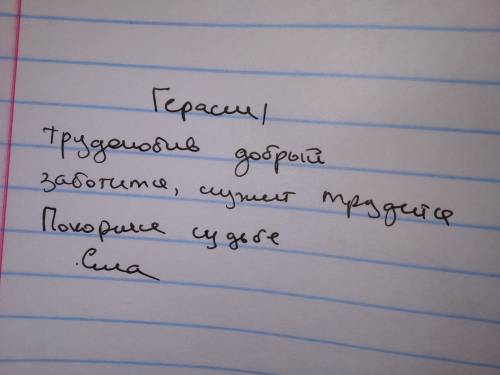 Герасим
трудолюбив добрый
заботится, служит трудится
Покорился судьбе
Сила